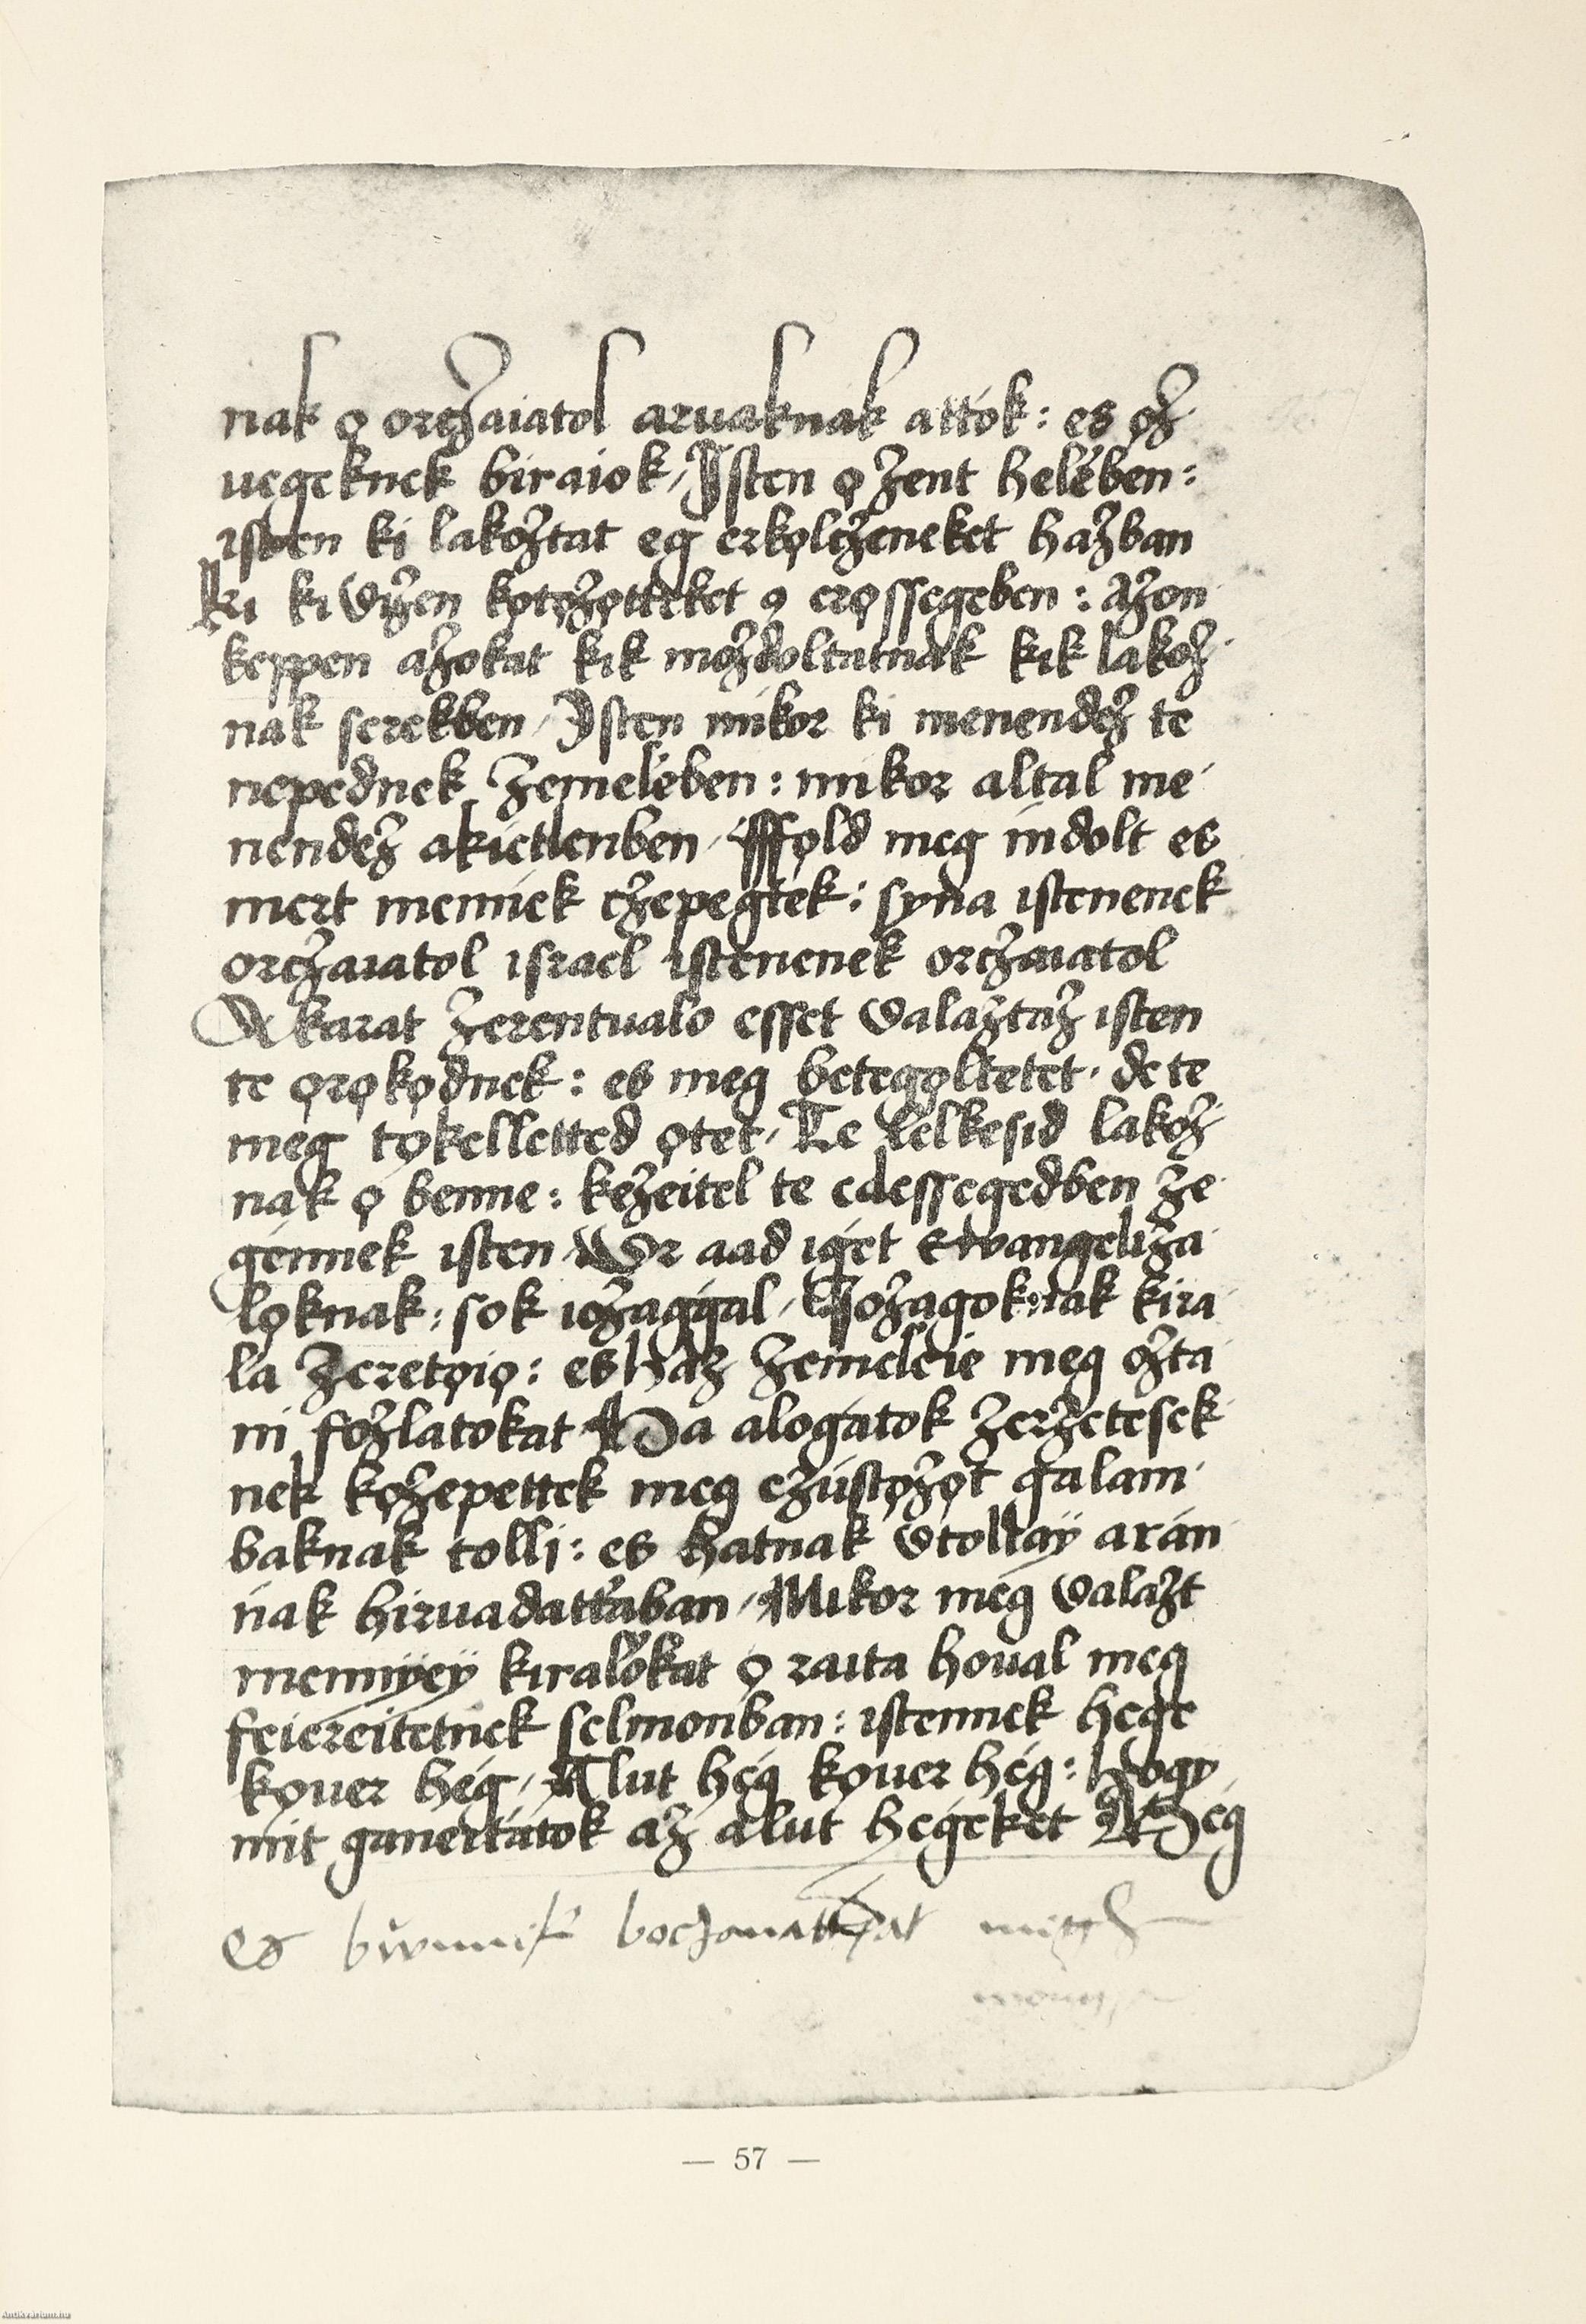 nak ọ orčzaiatol aruaknak attok : es ọz
uegeknek biraiok / Isten ọ zent heleben :
isten ki lakoztat eg erkọlčzeneket hazban
Ki ki vizen kọtọzọtteket ọ erọssegeben : Azon
keppen azokat kik mozdoltatnak kik lakoz
nak serekben / Isten mikor ki menendez te
nepednek zemeleben : mikor altal me
nendez akietlenben / ffọld meg indolt es
mert menniek čzepegtek : syna istenenek
orčzaiatol israel istenenek orčzaiatol
Akarat zerentualo esset valaztaz isten
te ọrọkọdnek : es meg betegọltetet · de te
meg tọkelletted ọtet / Te lelkesid lakoz
nak ọ benne : kezeitel te edessegedben ze
gennek isten Wr aad iget Ewangeliza
lọknak : sok iozaggal / Iozagoknak kira
la zeretọiọ : es haz zemeleie meg ozta
ni fozlatokat Ha alogatok zerzetesek
nek kọzepettek meg ezústọzọt galam
baknak tolli : es hatnak vtollaÿ aran
nak hiruadattaban / Mikor meg valazt
mennÿeÿ kiralokat ọ raita houal meg
feiereitetnek selmonban : istennek hege
kọuer heg / Alut heg kọuer heg : hogy
mit ganeitatok az alut hegeket Heg
— 57 —
Antikvarium.hu